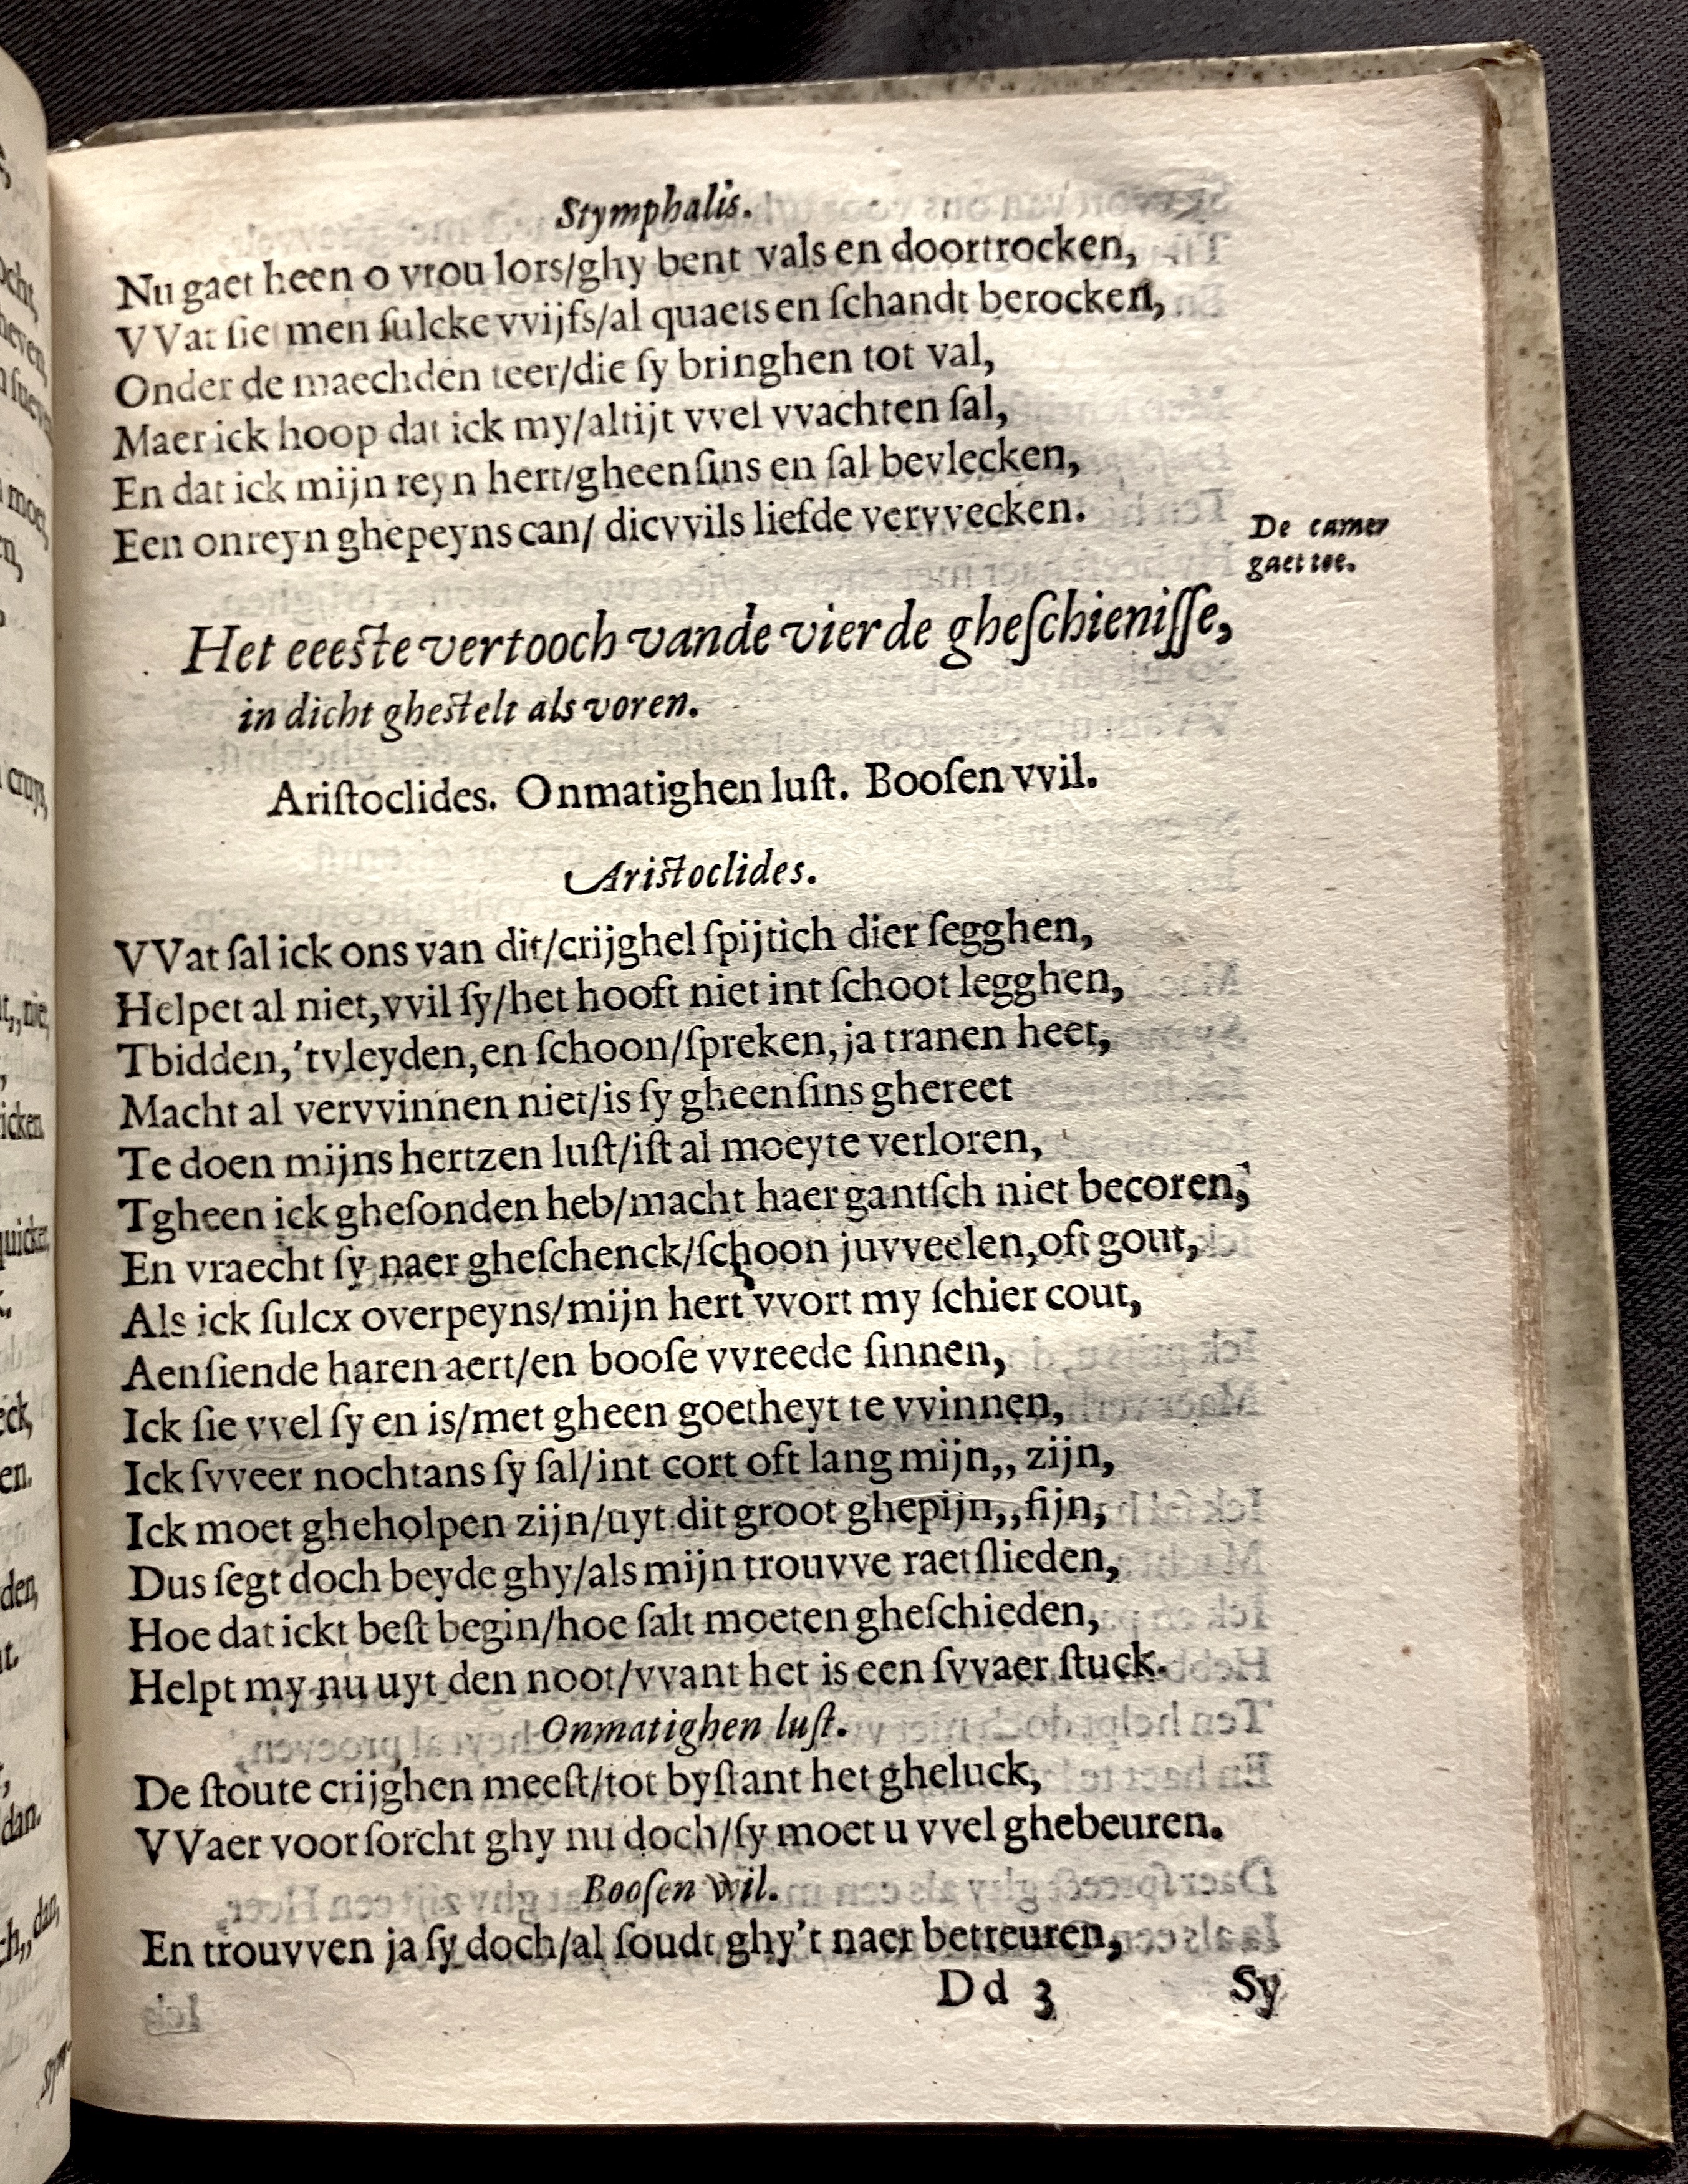 Stymphalis.
Nu gaet heen o vrou lors/ghy bent vals en doortrocken,
VVat sie men sulcke vvijfs/al quaets en schandt berocken,
Onder de maechden teer/die sy bringhen tot val,
Maer ick hoop dat ick my/altijt vvel vvachten sal,
En dat ick mijn reyn hert/gheensins en sal bevlecken,
Een onreyn ghepeyns can/ dicvvils liefde vervvecken.
De camer
gaet toe.
Het eeeste vertooch vande vierde gheschienisse,
in dicht ghestelt als voren.
Aristoclides. Onmatighen lust. Boosen vvil.
Aristoclides.
VVat sal ick ons van dit/crijghel spijtich dier segghen,
Helpet al niet,vvil sy/het hooft niet int schoot legghen,
Tbidden,'tvleyden,en schoon/spreken,ja tranen heet,
Macht al vervvinnen niet/is sy gheensins ghereet
Te doen mijns hertzen lust/ist al moeyte verloren,
Tgheen ick ghesonden heb/macht haer gantsch niet becoren,
En vraecht sy naer gheschenck/schoon juvveelen,oft gout,
Als ick sulcx overpeyns/mijn hert vvort my schier cout,
Aensiende haren aert/en boose vvreede sinnen,
Ick sie vvel sy en is/met gheen goetheyt te vvinnen,
Ick svveer nochtans sy sal/int cort oft lang mijn,, zijn,
Ick moet gheholpen zijn/uyt dit groot ghepijn,,fijn,
Dus segt doch beyde ghy/als mijn trouvve raetslieden,
Hoe dat ickt best begin/hoe salt moeten gheschieden,
Helpt my nu uyt den noot/vvant het is een svvaer stuck.
Onmatighen lust.
De stoute crijghen meest/tot bystant het gheluck,
VVaer voor sorcht ghy nu doch/sy moet u vvel ghebeuren.
Boosen Wil.
En trouvven ja sy doch/al soudt ghy't naer betreuren,
Dd 3 Sy